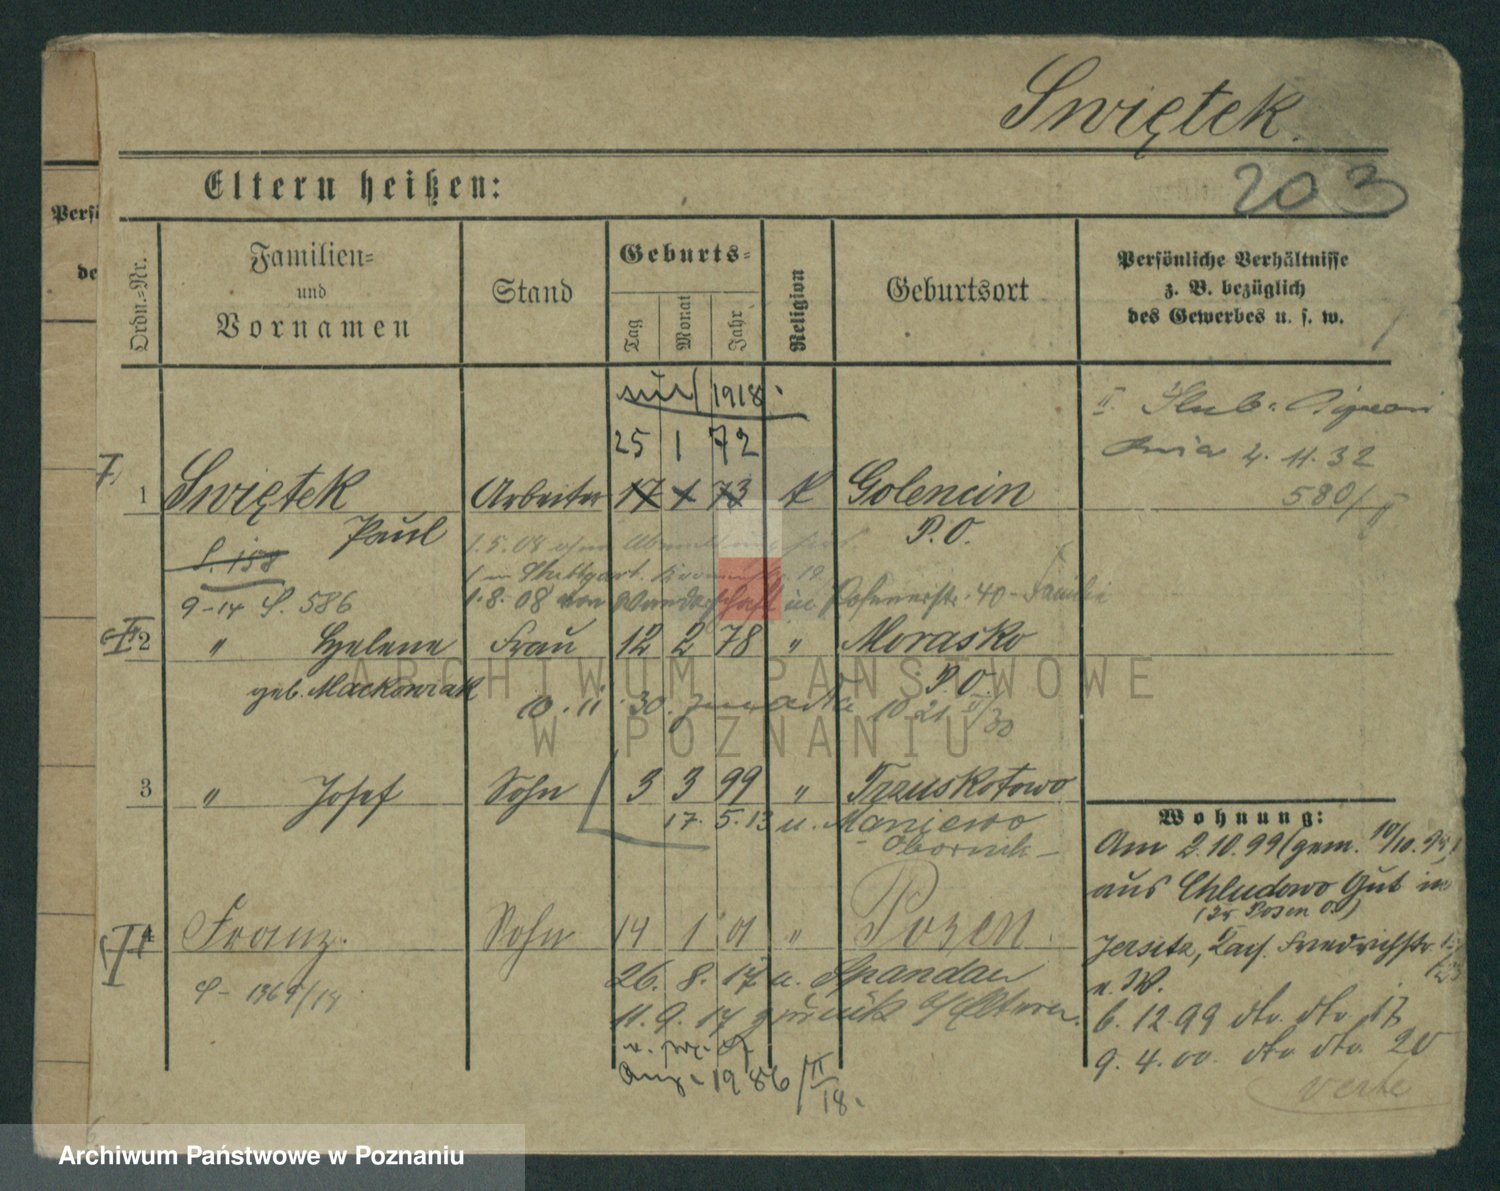 Swiętek.
Eltern heißen:
203
Persö
de
Ordn.=Nr.
Familien=
und
Vornamen
Stand
Geburts=
Tag
Monat
Jahr
Religion
Geburtsort
Persönliche Verhältnisse
z. B. bezüglich
des Gewerbes u. s. w.
1918.
25 1 72
II.
4. 11. 32
580/II
1 Swiętek Arbeiter 17 1 73 k Golencin
Paul P.O.
S. 158
1.5.08 ohne
in Stuttgart.
9-14 S. 586
1.8.08 von Wanderschaft in Posenerstr. 40 - Familie
2 " Helene Frau 12 2 78 " Morasko
geb. Mackowiak P.O.
10. 11. 30.
3 " Josef Sohn 3 3 99 " Trzuskotowo
17. 5. 13 u. Maniewo
Obornik
Wohnung:
Am 2.10.99 (gem. 10/10. 99)
aus Chludowo Gut in
Posen O.)
4 Franz. Sohn 14 1 01 " Posen.
Jersitz, Friedrichstr.
26. 8. 17 u. Spandau
11. 9. 17 zurück b/Eltern.
6. 12 99 dto. dto. 17
9. 4. 00. dto dto. 20
1986/II
18.
verte
ARCHIWUM PAŃSTWOWE
W POZNANIU
Archiwum Państwowe w Poznaniu